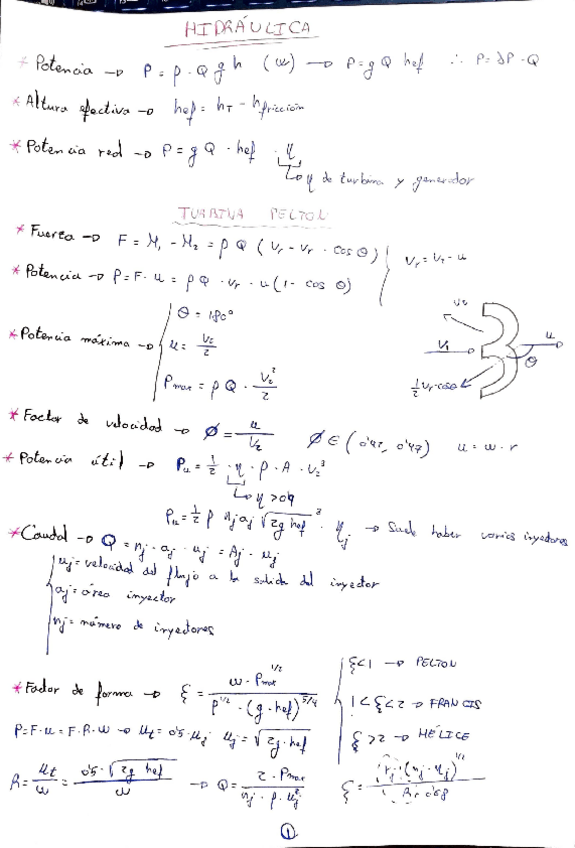 HIDRÁULICA
* Potencia → P = ρ · Q g h (W) → P = g Q hef ∴ P = ∂P · Q
* Altura efectiva → hef = hT - hfricción
* Potencia red → P = g Q · hef · η
↳ η de turbina y generador
TURBINA PELTON
* Fuerza → F = M₁ - M₂ = ρ Q (Vr - Vr · cos θ) Vr = V₂ - u
* Potencia → P = F · u = ρ Q · Vr · u (1 - cos θ)
θ = 180°
* Potencia máxima → u = V₂/2
Pmax = ρ Q · V₂²/2
V₁ u θ
½ Vr·cosθ
* Factor de velocidad → Ø = u/V₂ Ø ∈ (0'47, 0'47) u = w · r
* Potencia útil → Pu = ½ · η · ρ · A · V₂³
↳ η > 0'9
Pu = ½ ρ nj aj √(2g hef)³ · ηj → Suele haber varios inyectores
* Caudal → Q = nj · aj · uj = Aj · uj
uj = velocidad del flujo a la salida del inyector
aj = área inyector
nj = número de inyectores
ξ < 1 → PELTON
* Factor de forma → ξ = w · Pmax^1/2 / ρ^1/2 · (g · hef)^5/4 1 < ξ < 2 → FRANCIS
P = F · u = F · R · w → ut = 0'5 · uj uj = √(2g · hef) ξ > 2 → HÉLICE
R = ut/w = 0'5 · √(2g hef)/w → Q = 2 · Pmax / nj · ρ · uj² ξ =
1